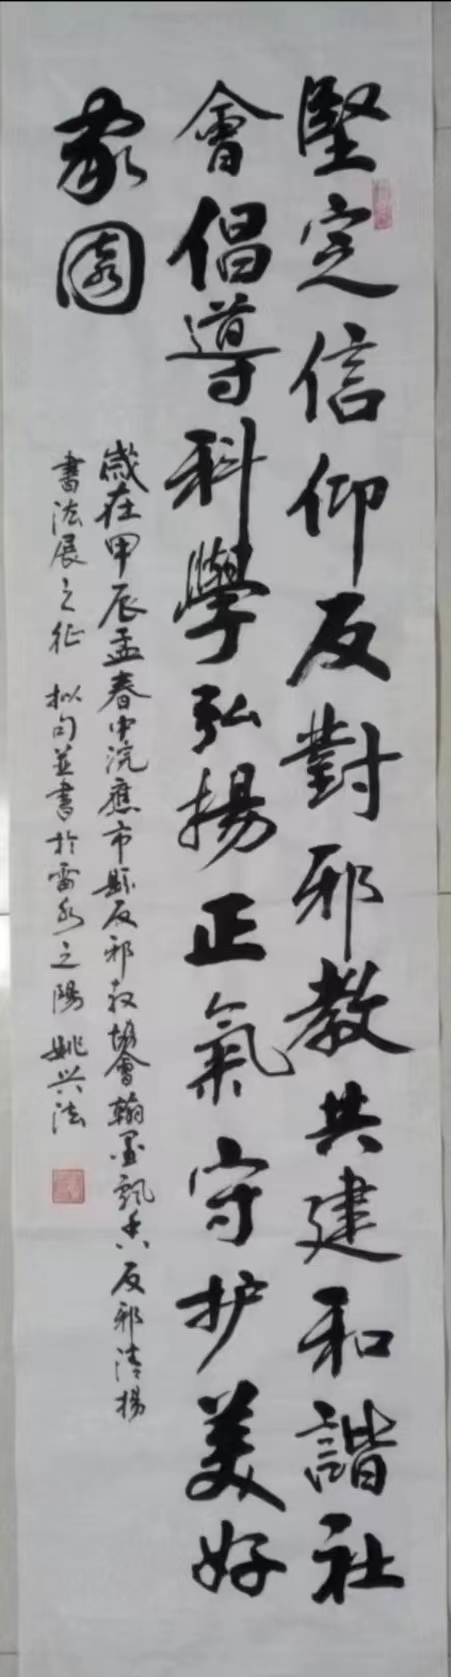 堅定信仰反對邪教共建和諧社
會倡導科學弘揚正氣守护美好
家園
歲在甲辰孟春中浣應市縣反邪教協會翰墨飘香反邪清揚
書法展之征 拟句並書於雷水之陽 姚兴法